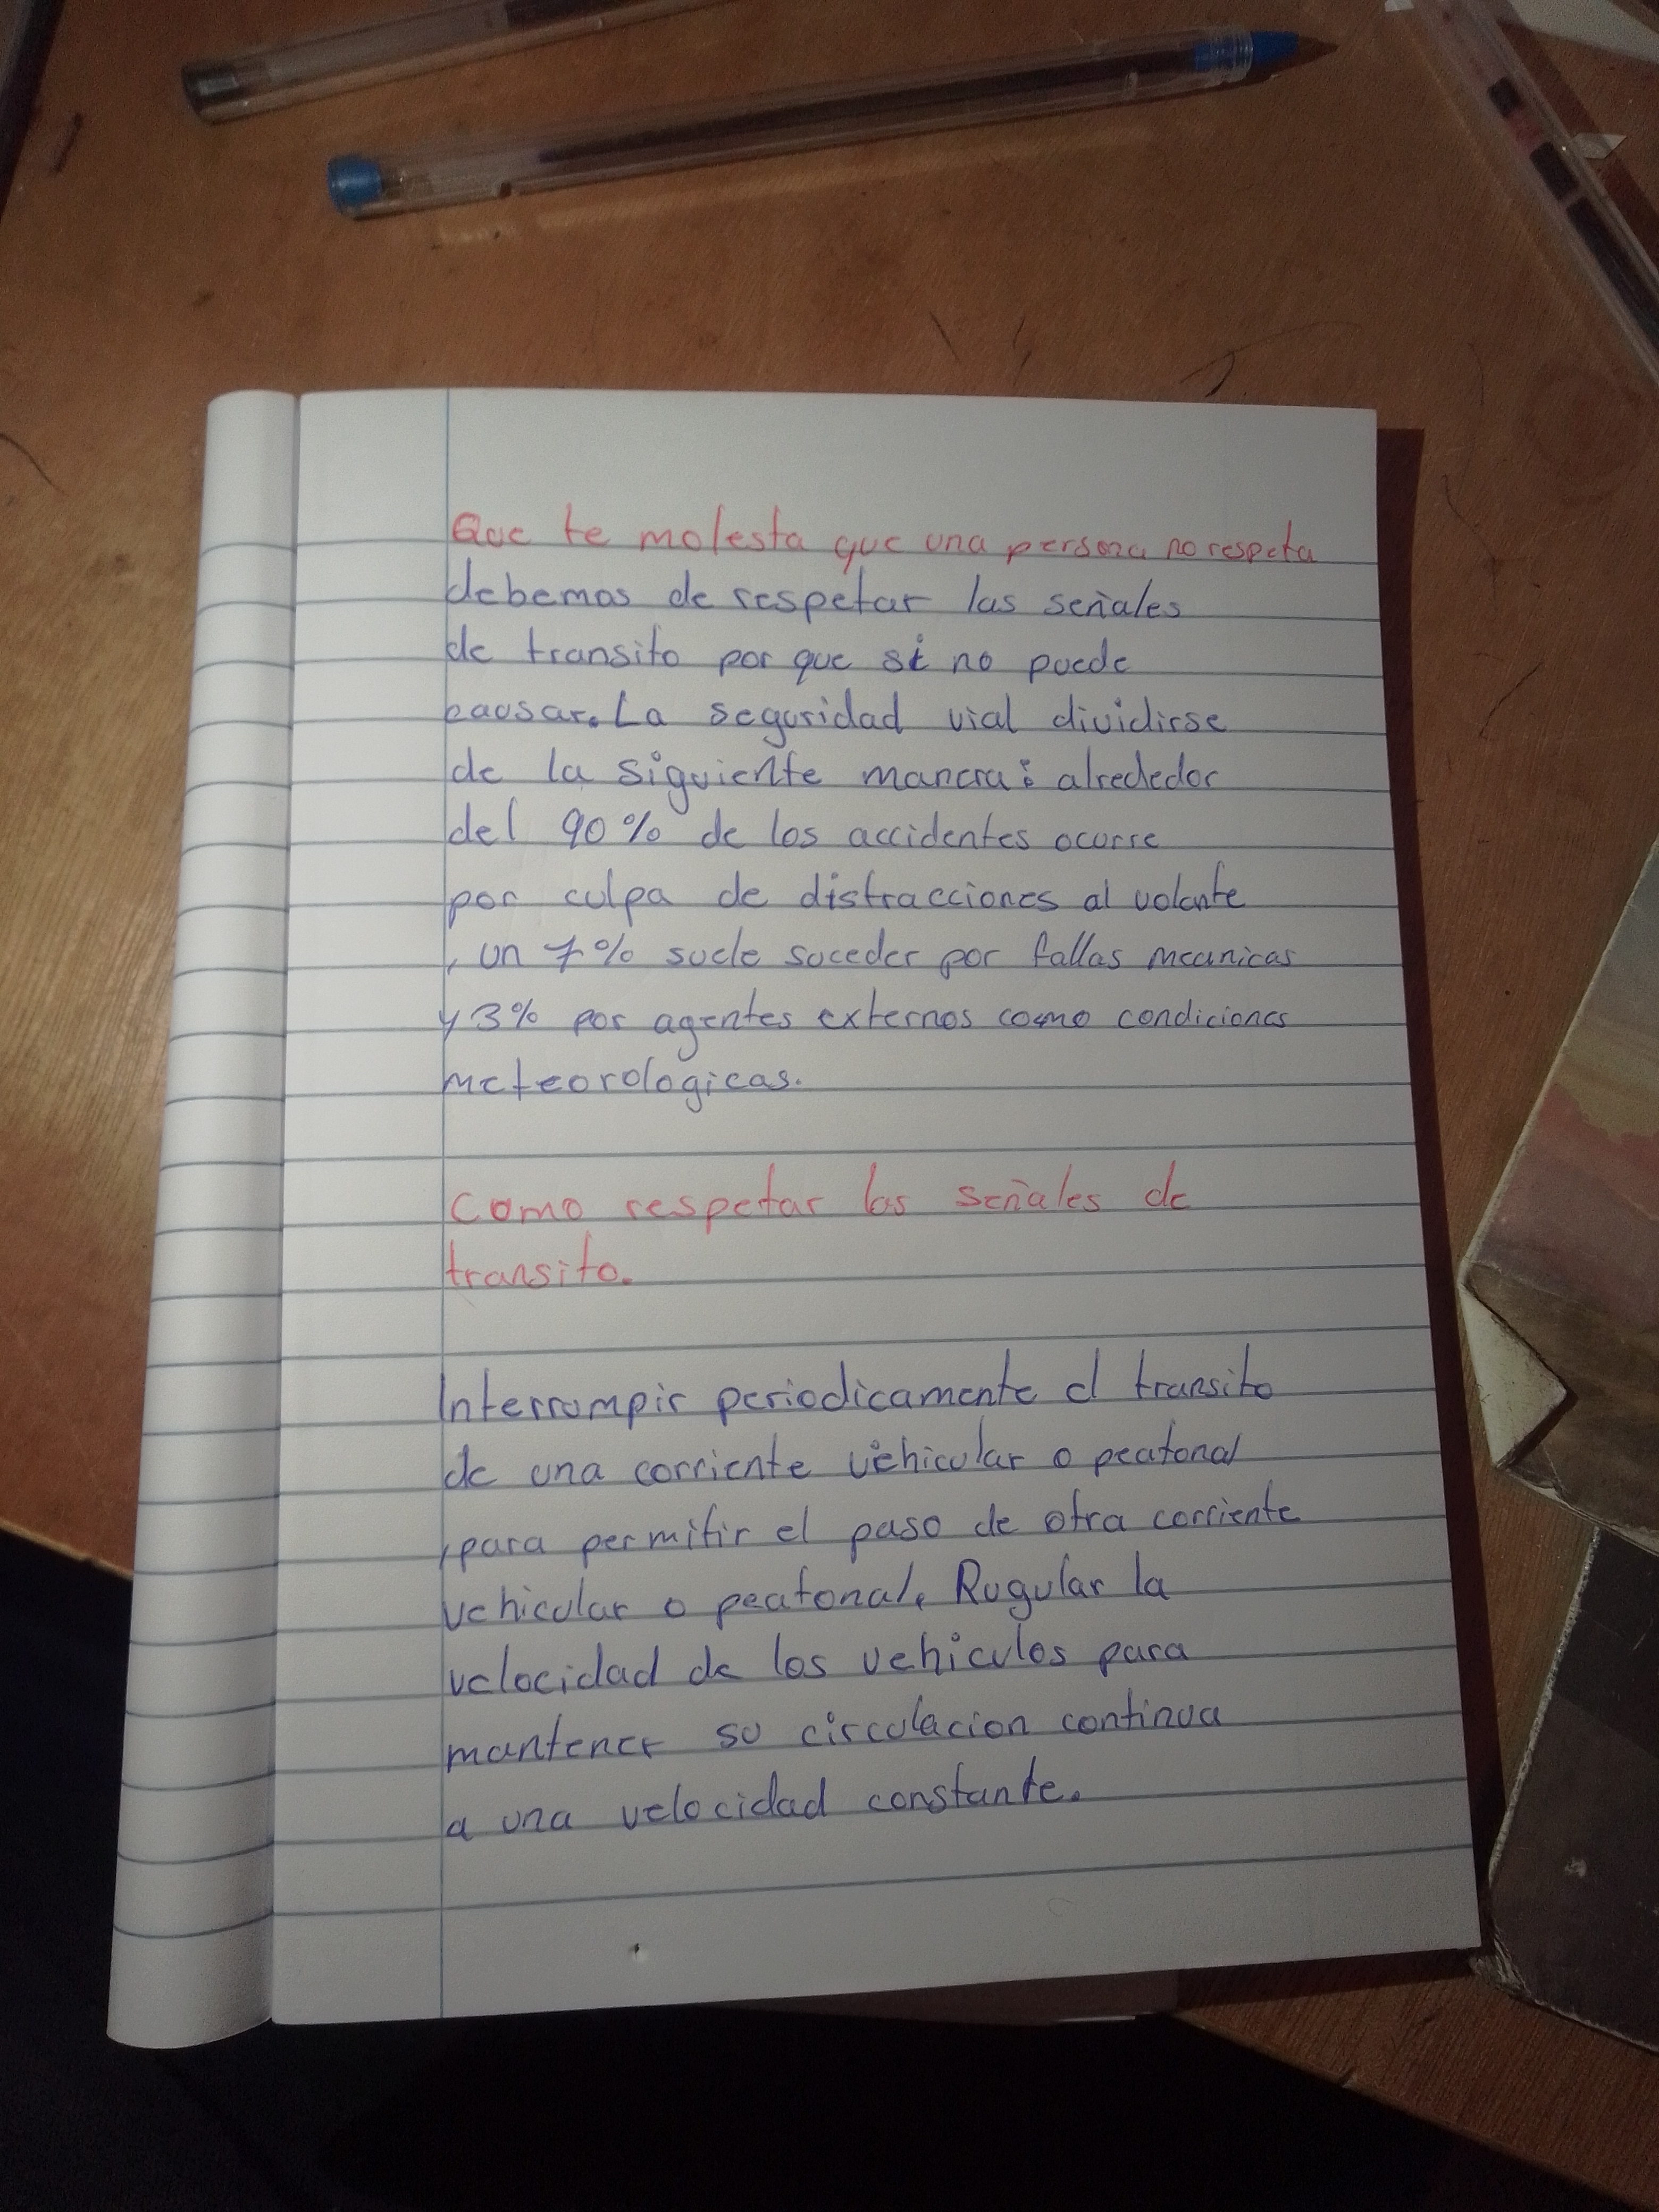 Que te molesta que una persona no respeta
debemos de respetar las señales
de transito por que si no puede
causar. La seguridad vial dividirse
de la siguiente manera: alrededor
del 90% de los accidentes ocurre
por culpa de distracciones al volante
, un 7% suele suceder por fallas mecanicas
y 3% por agentes externos como condiciones
meteorologicas.
Como respetar las señales de
transito.
Interrumpir periodicamente el transito
de una corriente vehicular o peatonal
, para permitir el paso de otra corriente
vehicular o peatonal. Rugular la
velocidad de los vehiculos para
mantener su circulacion continua
a una velocidad constante.